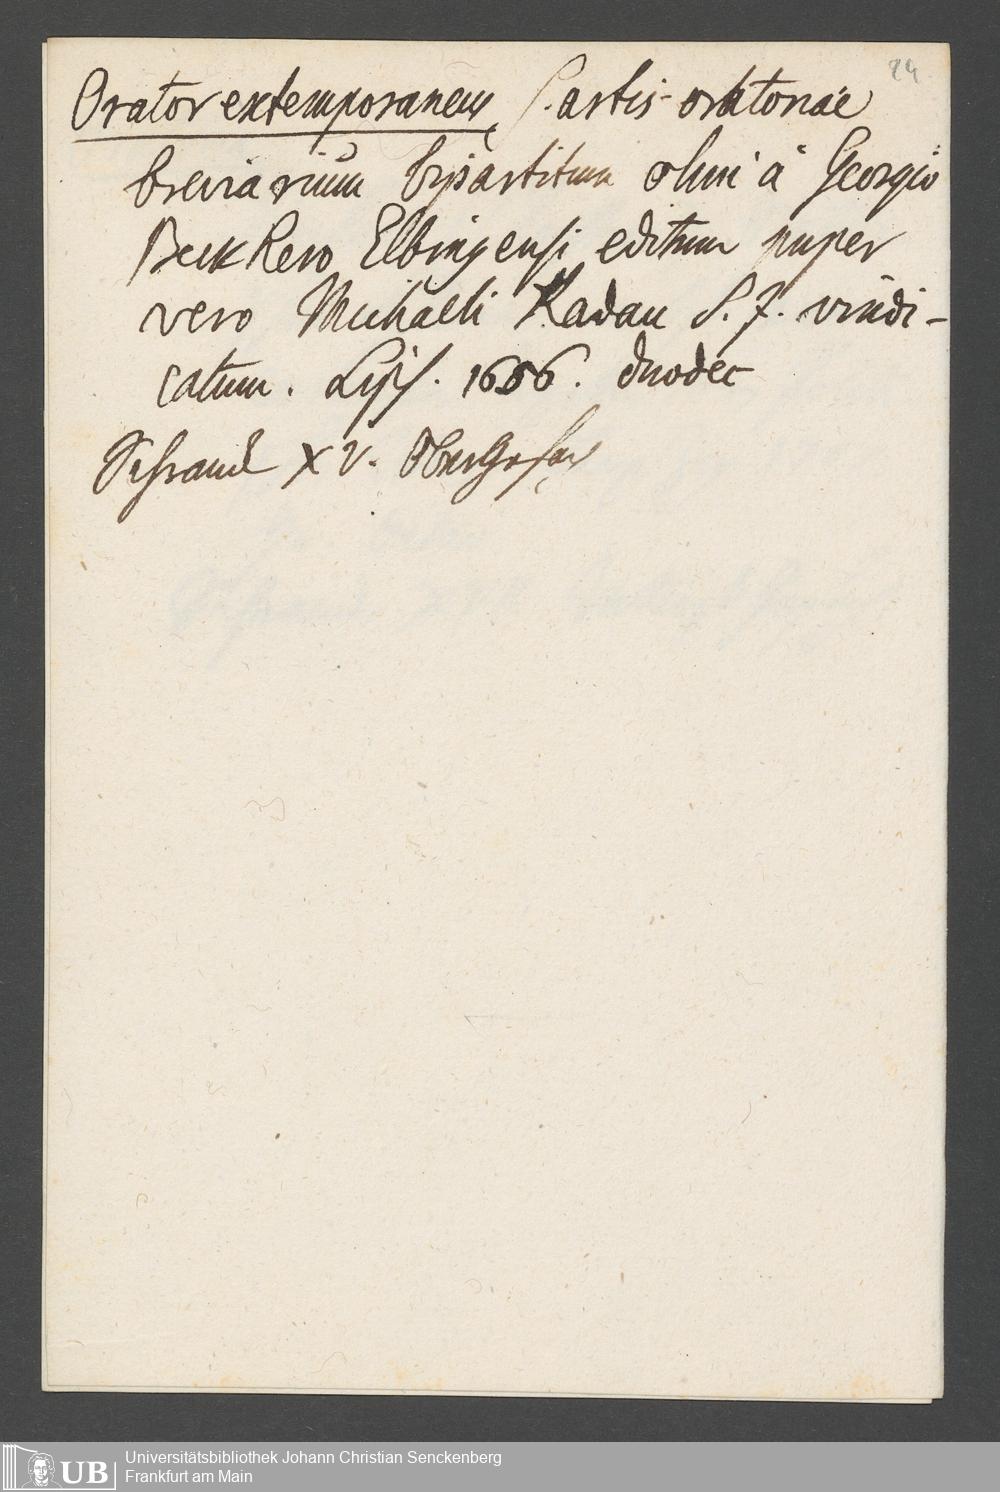 24
Orator extemporaneus, S. artis oratoriae
breviarium bipartitum olim à Georgio
Beckhero Elbingensi editum nuper
vero Michaeli Radau S. J. vindi-
catum. Lips. 1656. duodec
Schrank XV.
Universitätsbibliothek Johann Christian Senckenberg
Frankfurt am Main
UB